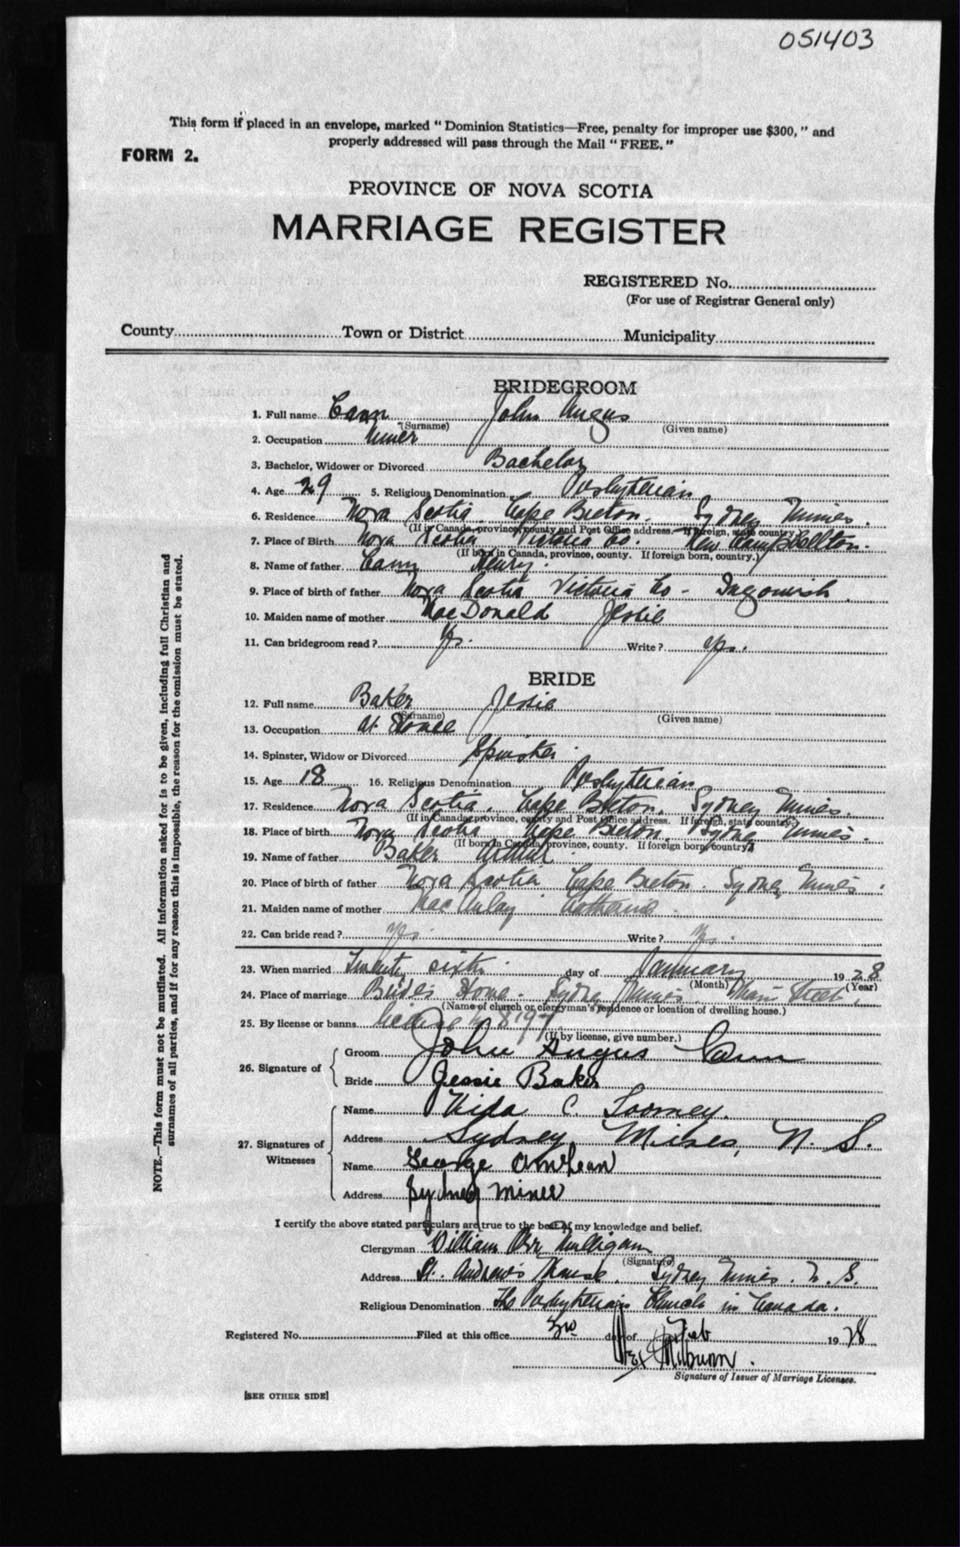 051403
This form if placed in an envelope, marked "Dominion Statistics—Free, penalty for improper use $300," and
properly addressed will pass through the Mail "FREE."
FORM 2.
PROVINCE OF NOVA SCOTIA
MARRIAGE REGISTER
REGISTERED No.
(For use of Registrar General only)
County Town or District Municipality
BRIDEGROOM
1. Full name Cann John Angus
(Surname) (Given name)
2. Occupation Miner
3. Bachelor, Widower or Divorced Bachelor
4. Age 29 5. Religious Denomination Presbyterian
6. Residence Nova Scotia Cape Breton. Sydney Mines.
(If in Canada, province, county and Post Office address. If foreign, state country.)
7. Place of Birth Nova Scotia Victoria Co. New Campbellton.
(If born in Canada, province, county. If foreign born, country.)
8. Name of father Cann Henry.
9. Place of birth of father Nova Scotia Victoria Co - Ingonish.
10. Maiden name of mother MacDonald Jessie
11. Can bridegroom read? Yes. Write? yes.
BRIDE
12. Full name Baker Jessie
(Surname) (Given name)
13. Occupation At Home
14. Spinster, Widow or Divorced Spinster.
15. Age 18 16. Religious Denomination Presbyterian
17. Residence Nova Scotia. Cape Breton. Sydney Mines.
(If in Canada, province, county and Post Office address. If foreign, state country.)
18. Place of birth Nova Scotia Cape Breton. Sydney Mines.
(If born in Canada, province, county. If foreign born, country.)
19. Name of father Baker Arthur.
20. Place of birth of father Nova Scotia Cape Breton. Sydney Mines.
21. Maiden name of mother MacAulay Catherine.
22. Can bride read? Yes. Write? Yes.
23. When married Twenty sixth. day of January 1928
(Month) (Year)
24. Place of marriage Brides Home. Sydney Mines. Main Street.
(Name of church or clergyman's residence or location of dwelling house.)
25. By license or banns License No 8197
(If by license, give number.)
26. Signature of
Groom John Angus Cann
Bride Jessie Baker
27. Signatures of Witnesses
Name C. Toomey.
Address Sydney Mines, N. S.
Name George
Address Sydney Mines
I certify the above stated particulars are true to the best of my knowledge and belief.
Clergyman William Orr Mulligan
(Signature)
Address St. Andrew's Manse. Sydney Mines. N. S.
Religious Denomination The Presbyterian Church in Canada.
Registered No. Filed at this office 3rd day of Feb 1928
Milburn.
Signature of Issuer of Marriage Licenses.
[SEE OTHER SIDE]
NOTE.—This form must not be mutilated. All information asked for is to be given, including full Christian and
surnames of all parties, and if for any reason this is impossible, the reason for the omission must be stated.